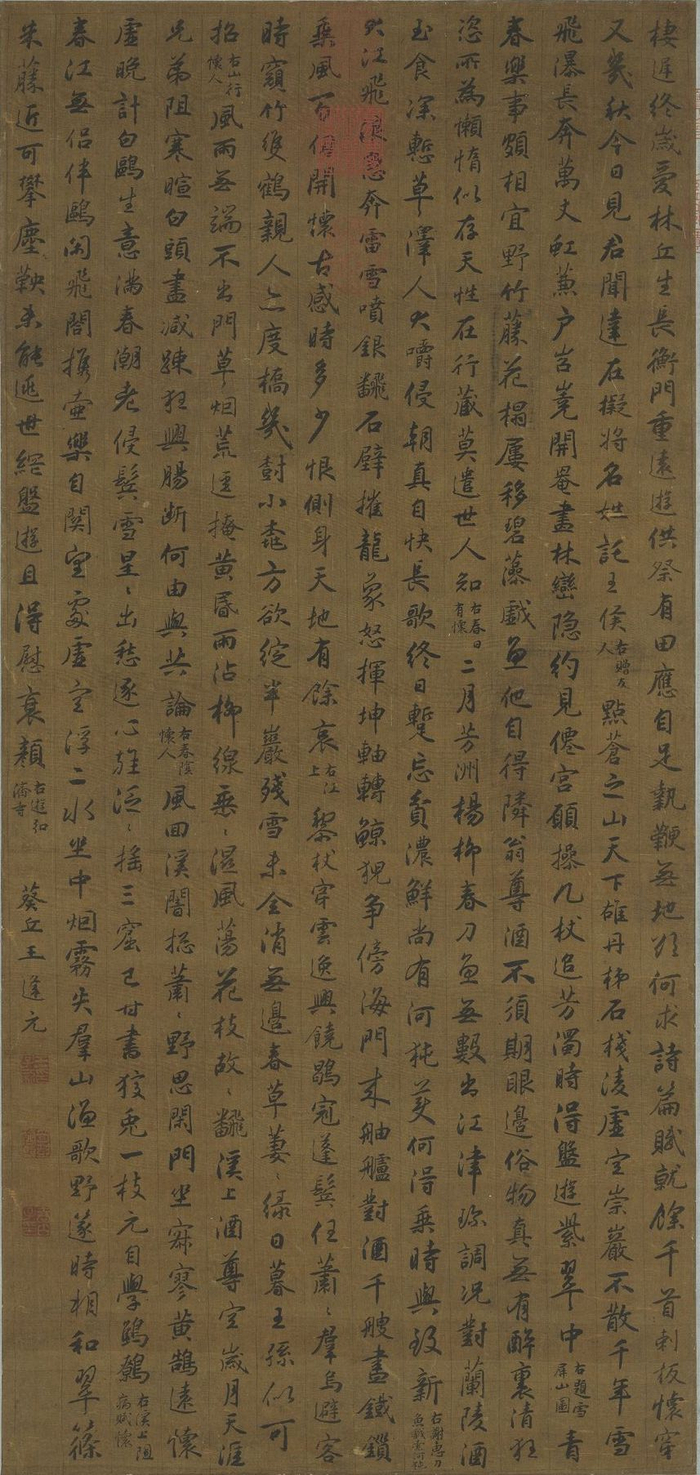 棲遲終歲愛林丘生長衡門重遠遊供祭有田應自足執鞭無地欲何求詩篇賦就餘千首刺板懷穿
又幾秋今日見君聞達在擬將名姓託王侯右贈友人點蒼之山天下雄丹梯石棧凌虛空崇巖不散千年雪
飛瀑長奔萬丈虹薫户岧嶤開罨畫林巒隱約見僊宮願操几杖追芳躅時得盤遊紫翠中右題雪屏山圖青
春樂事頗相宜野竹藤花榻屢移碧藻戲魚他自得隣翁尊酒不須期眼邊俗物真無有醉裏清狂
恣所為懶惰似存天性在行藏莫遣世人知右春日有懷二月芳洲楊柳春刀魚無數出江津珍調况對蘭陵酒
玉食深慙草澤人大嚼侵朝真自快長歌終日蹔忘貧濃鮮尚有河㹠美何得乗時與致新右謝惠刀魚戲索河㹠
大江飛浪急奔雷雪噴銀飜石壁摧龍象怒揮坤軸轉鯨猊争傍海門来舳艫對酒千艘盡鐵鎖
乗風百仞開懷古感時多少恨側身天地有餘哀右江上黎杖穿雲逸興饒鶡冠蓬鬂任蕭〻羣烏避客
時窺竹雙鶴親人亦度橋幾樹小桃方欲綻半巖殘雪未全消無邊春草萋〻緑日暮王孫似可
招右山行懷人風雨無端不出門草烟荒逕掩黄昏雨沾柳線垂〻濕風蕩花枝故〻飜溪上酒尊空歲月天涯
兄弟阻寒暄白頭盡減踈狂興腸斷何由與共論右春陰懷人風回溪閣揔蕭〻野思閑門坐寂寥黄鵠遠懷
虛晚計白鷗生意满春潮老侵鬂雪星〻出愁逐心旌泛〻揺三窟已甘書狡兎一枝元自學鷦鷯右溪上阻病賦懷
春江無侣伴鷗閑飛閣携壺樂自関室處虛空浮二水坐中烟霧失羣山漁歌野遂時相和翠篠
朱藤近可攀塵鞅未能逃世綱盤遊且得慰衰顔右遊弘濟寺葵丘王逢元